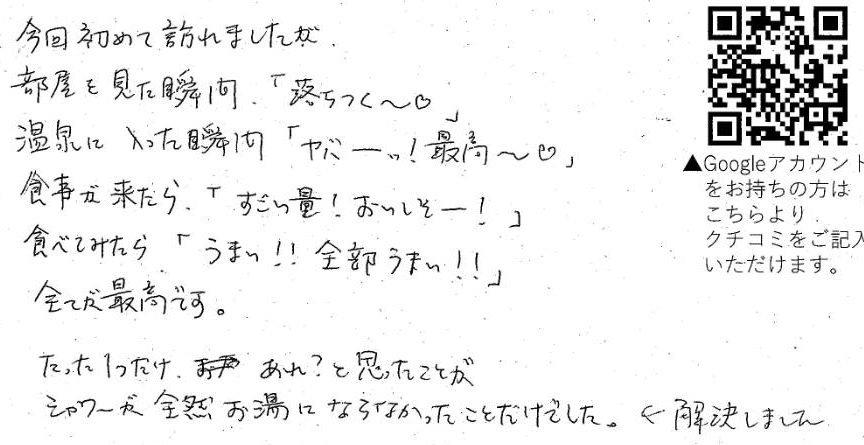 今回初めて訪れましたが、
部屋を見た瞬間、「落ちつく〜♡」
温泉に入った瞬間「ヤバーッ!最高〜♡」
食事が来たら、「すごい量!おいしそー!」
食べてみたら「うまい!!全部うまい!!」
全てが最高です。
たった1つだけ、あれ?と思ったことが
シャワーが全然お湯にならなかったことだけでした。←解決しました
▲Googleアカウント
をお持ちの方は
こちらより
クチコミをご記入
いただけます。